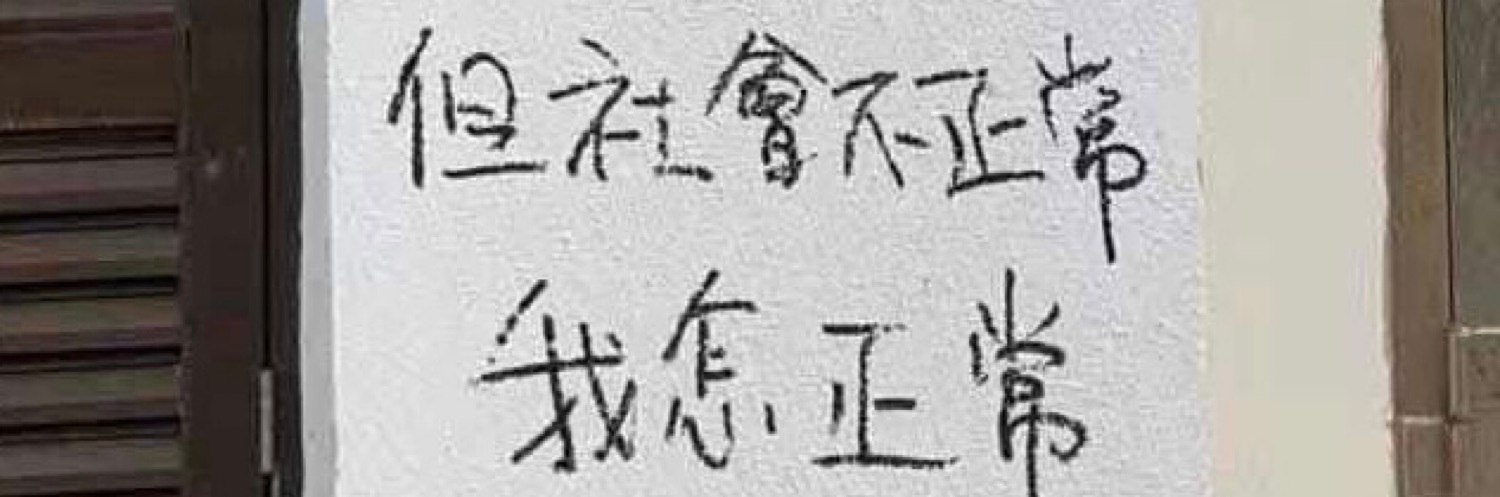 但社會不正常
我怎正常